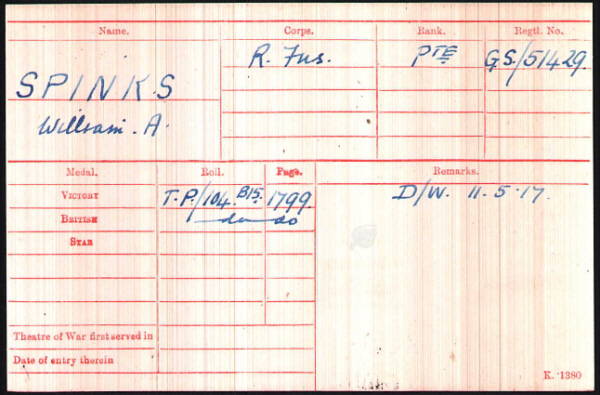 Name. Corps. Rank. Regtl. No.
SPINKS R. Fus. PTE GS/51429.
William. A.
Medal. Roll. Page. Remarks.
VICTORY T.P./104. B15. 1799 D/W. 11.5.17.
BRITISH do do
STAR
Theatre of War first served in
Date of entry therein
K. 1380